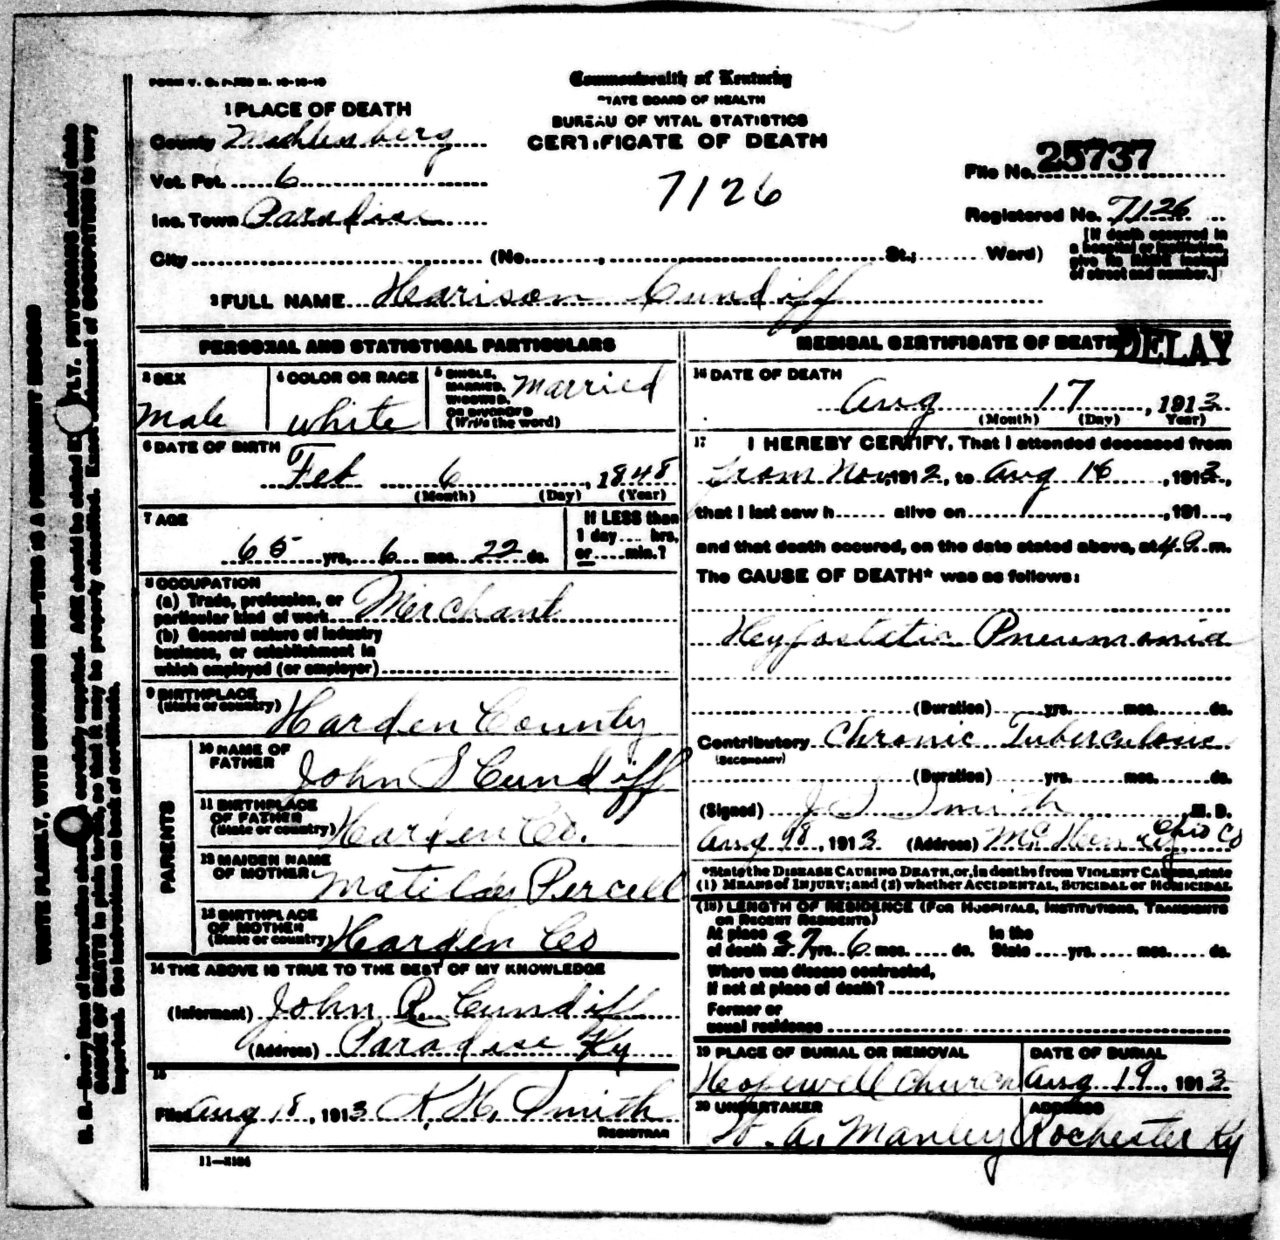 FORM V. S. 1-350 M. 10-10-10
Commonwealth of Kentucky
STATE BOARD OF HEALTH
BUREAU OF VITAL STATISTICS
CERTIFICATE OF DEATH
1 PLACE OF DEATH
County Muhlenberg
Vot. Pct. 6
Inc. Town Paradise
City (No. , St.; Ward)
7126
File No. 25737
Registered No. 7126
[If death occurred in
a hospital or institution,
give its NAME instead
of street and number.]
2 FULL NAME Harison Cundiff
PERSONAL AND STATISTICAL PARTICULARS
3 SEX
Male
4 COLOR OR RACE
white
5 SINGLE,
MARRIED,
WIDOWED,
OR DIVORCED
(Write the word)
Married
6 DATE OF BIRTH
Feb 6, 1848
(Month) (Day) (Year)
7 AGE
65 yrs. 6 mos. 22 ds.
If LESS than
1 day.... hrs.
or.....min.?
8 OCCUPATION
(a) Trade, profession, or
particular kind of work Merchant
(b) General nature of industry
business, or establishment in
which employed (or employer)
9 BIRTHPLACE
(State or country)
Harden County
PARENTS
10 NAME OF
FATHER
John S Cundiff
11 BIRTHPLACE
OF FATHER
(State or country)
Harden Co.
12 MAIDEN NAME
OF MOTHER
Matilda Percell
13 BIRTHPLACE
OF MOTHER
(State or country)
Harden Co
14 THE ABOVE IS TRUE TO THE BEST OF MY KNOWLEDGE
(Informant) John R. Cundiff
(Address) Paradise Ky
15
Filed Aug 18, 1913 K. H. Smith
REGISTRAR
11—3184
MEDICAL CERTIFICATE OF DEATH
DELAY
16 DATE OF DEATH
Aug 17, 1913
(Month) (Day) Year)
17 I HEREBY CERTIFY, That I attended deceased from
from Nov, 1912, to Aug 16, 1913,
that I last saw h...... alive on ,191...,
and that death occured, on the date stated above, at 4 a. m.
The CAUSE OF DEATH* was as follows:
Heyfostatic Pneumonia
(Duration) yrs. mos. ds.
Contributory Chronic Tuberculosis
(SECONDARY)
(Duration) yrs. mos. ds.
(Signed) J. S. Smith M. D.
Aug 18, 1913 (Address) McHenry Ohio Co
*State the DISEASE CAUSING DEATH, or, in deaths from VIOLENT CAUSES, state
(1) MEANS OF INJURY; and (2) whether ACCIDENTAL, SUICIDAL or HOMICIDAL
(18) LENGTH OF RESIDENCE (FOR HOSPITALS, INSTITUTIONS, TRANSIENTS
OR RECENT RESIDENTS)
At place In the
of death 37 yrs. 6 mos. ds. State yrs. mos. ds.
Where was disease contracted,
if not at place of death?
Former or
usual residence
19 PLACE OF BURIAL OR REMOVAL
Hopewell Church
DATE OF BURIAL
Aug 19, 1913
20 UNDERTAKER
W. A. Manley
ADDRESS
Rochester Ky
WRITE PLAINLY, WITH UNFADING INK—THIS IS A PERMANENT RECORD
N. B.—Every item of information should be carefully supplied. AGE should be stated EXACTLY. PHYSICIANS should state
CAUSE OF DEATH in plain terms, so that it may be properly classified. Exact statement of OCCUPATION is very
important. See instructions on back of certificate.